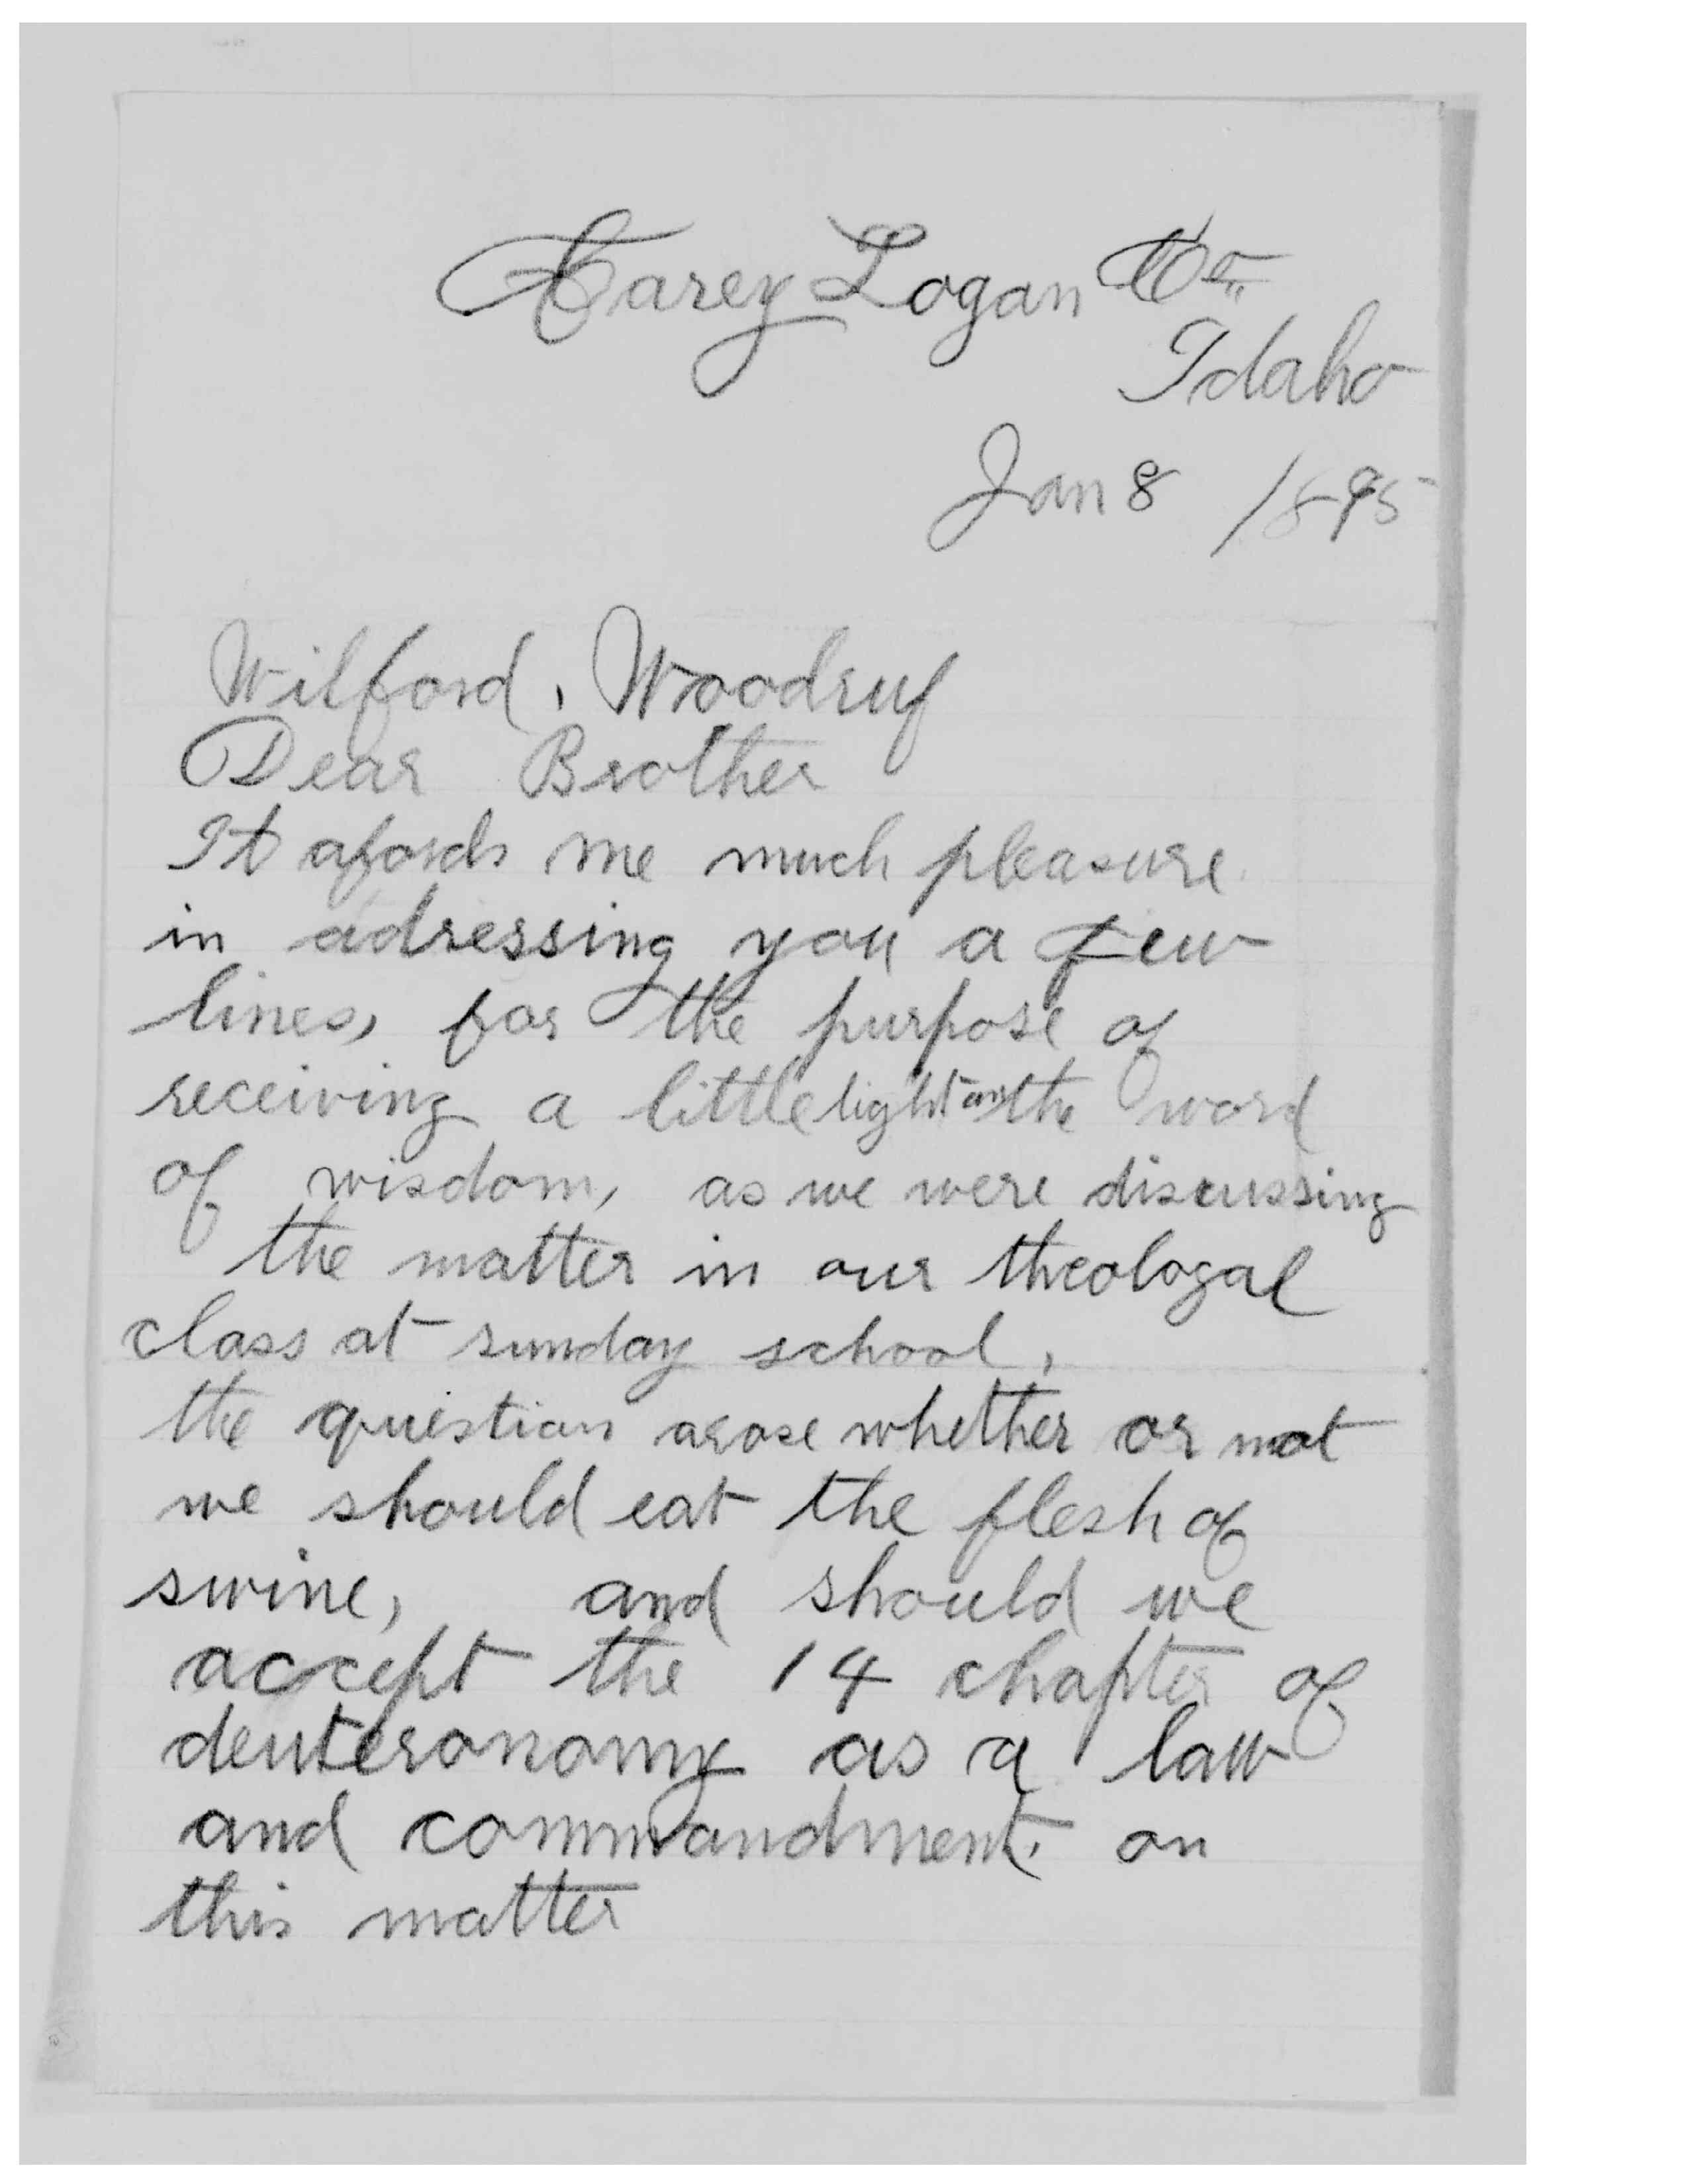 Carey Logan Co
Idaho
Jan 8 1895
Wilford, Woodruf
Dear Brother
It afords me much pleasure
in adressing you a few
lines, for the purpose of
receiving a little light on the word
of wisdom, as we were discussing
the matter in our theologal
class at sunday school,
the question arose whether or not
we should eat the flesh of
swine, and should we
accept the 14 chapter of
deuteronomy as a law
and commandment. on
this matter